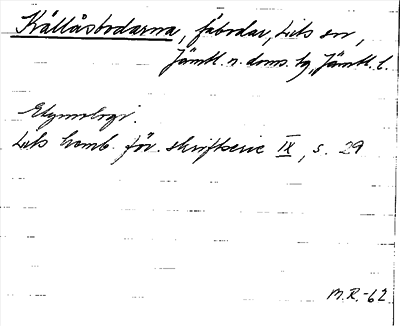 Källåsbodarna, fäbodar, Lits sn,
Jämtl. n. doms. tg, Jämtl. l.
Etymologi.
Lits hemb. för. skriftserie IX, s. 29
M.R.-62